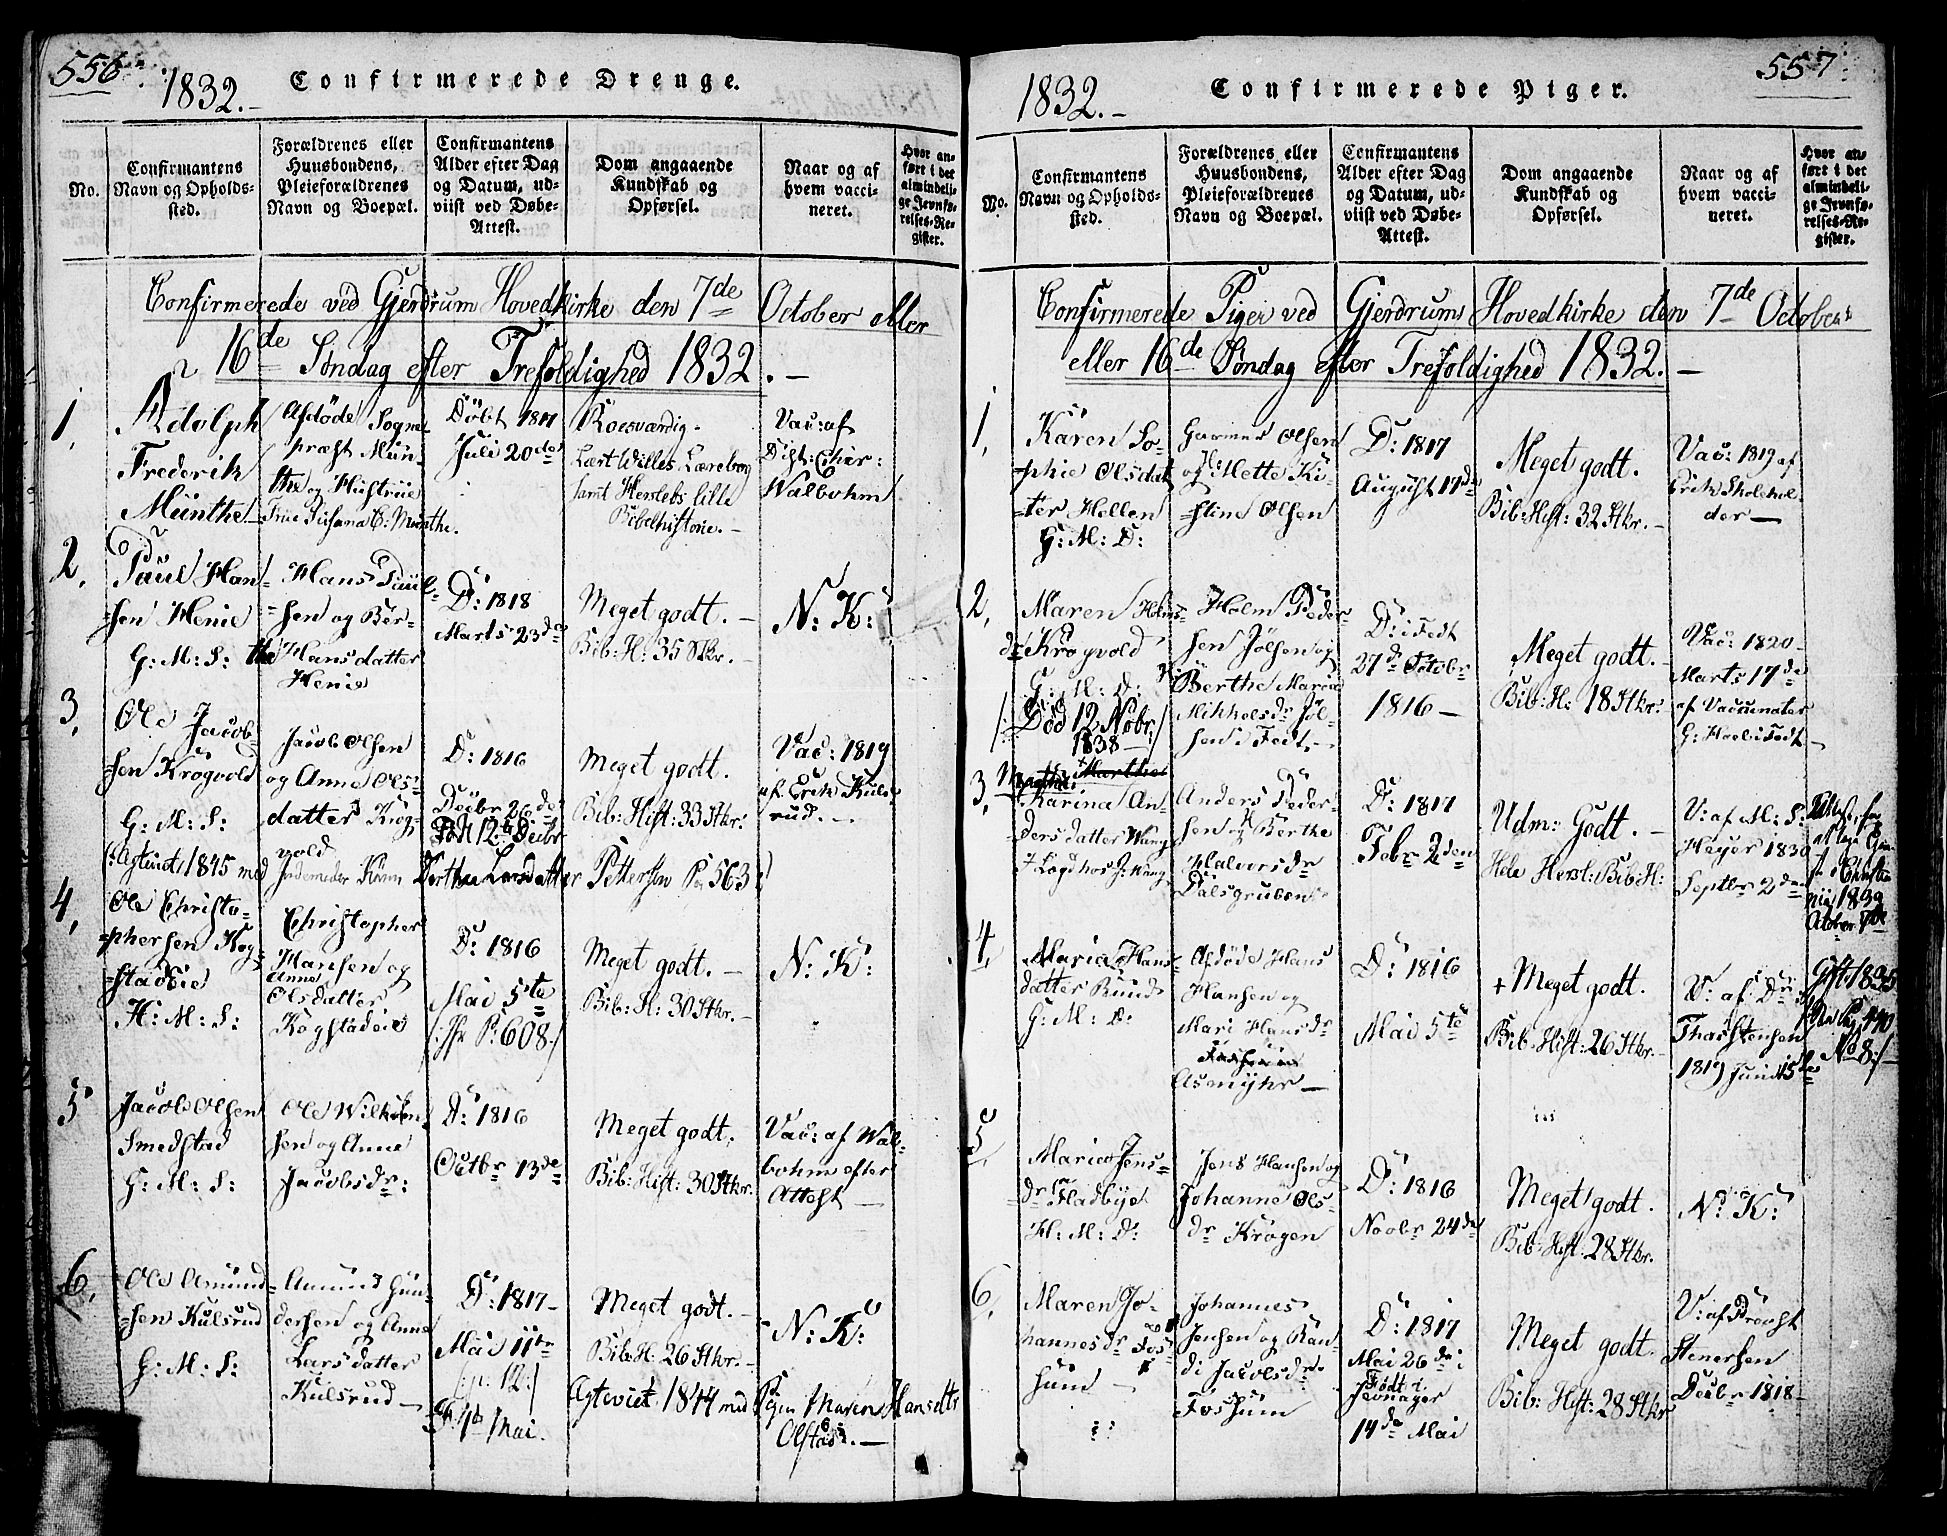 556
1832.-
Confirmerede Drenge.
No.
Confirmantens
Navn og Opholds-
sted.
Forældrenes eller
Huusbondens,
Pleieforældrenes
Navn og Boepæl.
Confirmantens
Alder efter Dag
og Datum, ud-
viist ved Døbe-
Attest.
Dom angaaende
Kundskab og
Opførsel.
Naar og af
hvem vacci-
neret.
Hvor an-
ført i det
almindeli-
ge Jevnfø-
relses-Re-
gister.
Confirmerede ved Gjerdrum Hovedkirke den 7de October eller
16de Søndag efter Trefoldighed 1832.-
1,
Adolph
Frederik
Münthe
Afdøde Sogne-
præst Mün-
the og Hustrue
Døbt 1817
Juli 20de
Roesværdig.
Lært Willes Lærebog
samt Herslebs lille
Bibelhistorie.-
Vac: af
Walbohm
2,
Paul Han-
sen Henie
G: M: S:
Hans Paul-
sen og Ber-
the Hansdatter
Henie
D: 1818
Marts 23de
Meget godt.-
Bib: H: 35 Stkr.-
N: K:
3,
Ole Jacob-
sen Krogvold
G: M: S:
Jacob Olsen
og Anne Ols-
datter Krog-
vold
D: 1816
Decbr 26de
Meget godt.
Bib: Hist: 33 Stkr:
Vac: 1819
af Erik Kuls-
rud.-
1845 med
Pettersen P. 563
4,
Ole Christo-
phersen Kog-
stadeie
H: M: S:
Christopher
Hansen og
Anne
Olsdatter
Kogstadeie
D: 1816
Mai 5te
P: 608
Meget godt.-
Bib: H: 30 Stkr.-
N: K:
5
Jacob Olsen
Smedstad
G: M: S:
Ole Wilhelm-
sen og Anne
Jacobsdr:
D: 1816
Octbr 13de
Meget godt.
Bib: Hist: 30 Stkr.
Vac: af Wal-
bohm efter
Attest
6,
Ole Amund-
sen Kulsrud
G: M: S:
Amund Gun-
dersen og Anne
Larsdatter
Kulsrud
D: 1817
Mai 11te
F. 1te Mai.
Meget godt.-
Bib: H: 26 Stkr.-
N: K:
1844 med Pigen Maren Hansdtr
Olstad.-
557
1832.-
Confirmerede Piger.
No.
Confirmantens
Navn og Opholds-
sted.
Forældrenes eller
Huusbondens,
Pleieforældrenes
Navn og Boepæl.
Confirmantens
Alder efter Dag
og Datum, ud-
viist ved Døbe-
Attest.
Dom angaaende
Kundskab og
Opførsel.
Naar og af
hvem vacci-
neret.
Hvor an-
ført i det
almindeli-
ge Jevnfø-
relses-Re-
gister.
Confirmerede Piger ved Gjerdrums Hovedkirke den 7de October
eller 16de Søndag efter Trefoldighed 1832.-
1,
Karen So-
phie Olsdatt
G: M: D:
Olsen
og H: Mette Ki-
stine Olsen
D: 1817
August 17de
Meget godt.
Bib: Hist: 32 Stkr.-
Vac: 1819 af
Erik Skolehol-
der
2,
Maren Holms-
dr Krogvold
G: M: D:
Død 12 Novbr:
1838
Holm Peder-
sen Jølsen og
Berthe Marie
Mikkelsdr Jøl-
sen i Fedt.-
D: i Fedt
27de Octobr
1816
Meget godt.-
Bib: H: 18 Stkr:
Vac: 1820
Marts 17de
3,
Marthe
Karina An-
dersdatter Wang
Anders Peder-
sen og Berthe
Halvorsdr
Dalsgruben
D: 1817
Febr 2den
Udm: Godt.-
Hele Hersl: Bib: H:
V: af M: S:
Heyer 1830
Septbr 2den
4,
Maria Hans-
datter Rund
G: M: D:
Afdøde Hans
Hansen og
Mari Hansdr
Asmyhr
D: 1816
Mai 5te
+ Meget godt.
Bib: Hist: 26 Stkr.-
V: af Dr
1819 Juni 15de
Gift 1835
No 8
5,
Maria Jens-
dr Fladbye
H: M: D:
Jens Hansen og
Johanne Ols-
dr Krogen
D: 1816
Novbr 24de
Meget godt.
Bib: Hist: 28 Stkr.
N: K:
6,
Maren Jo-
hannesdr Fos-
sum
Johannes
Jensen og Ran-
di Jacobsdr
Fossum
D: 1817
Mai 26de
Født i
Jevnager
14de Mai
Meget godt.
Bib: Hist: 28 Stkr
V: af Provst
Stenersen
Decbr 1818